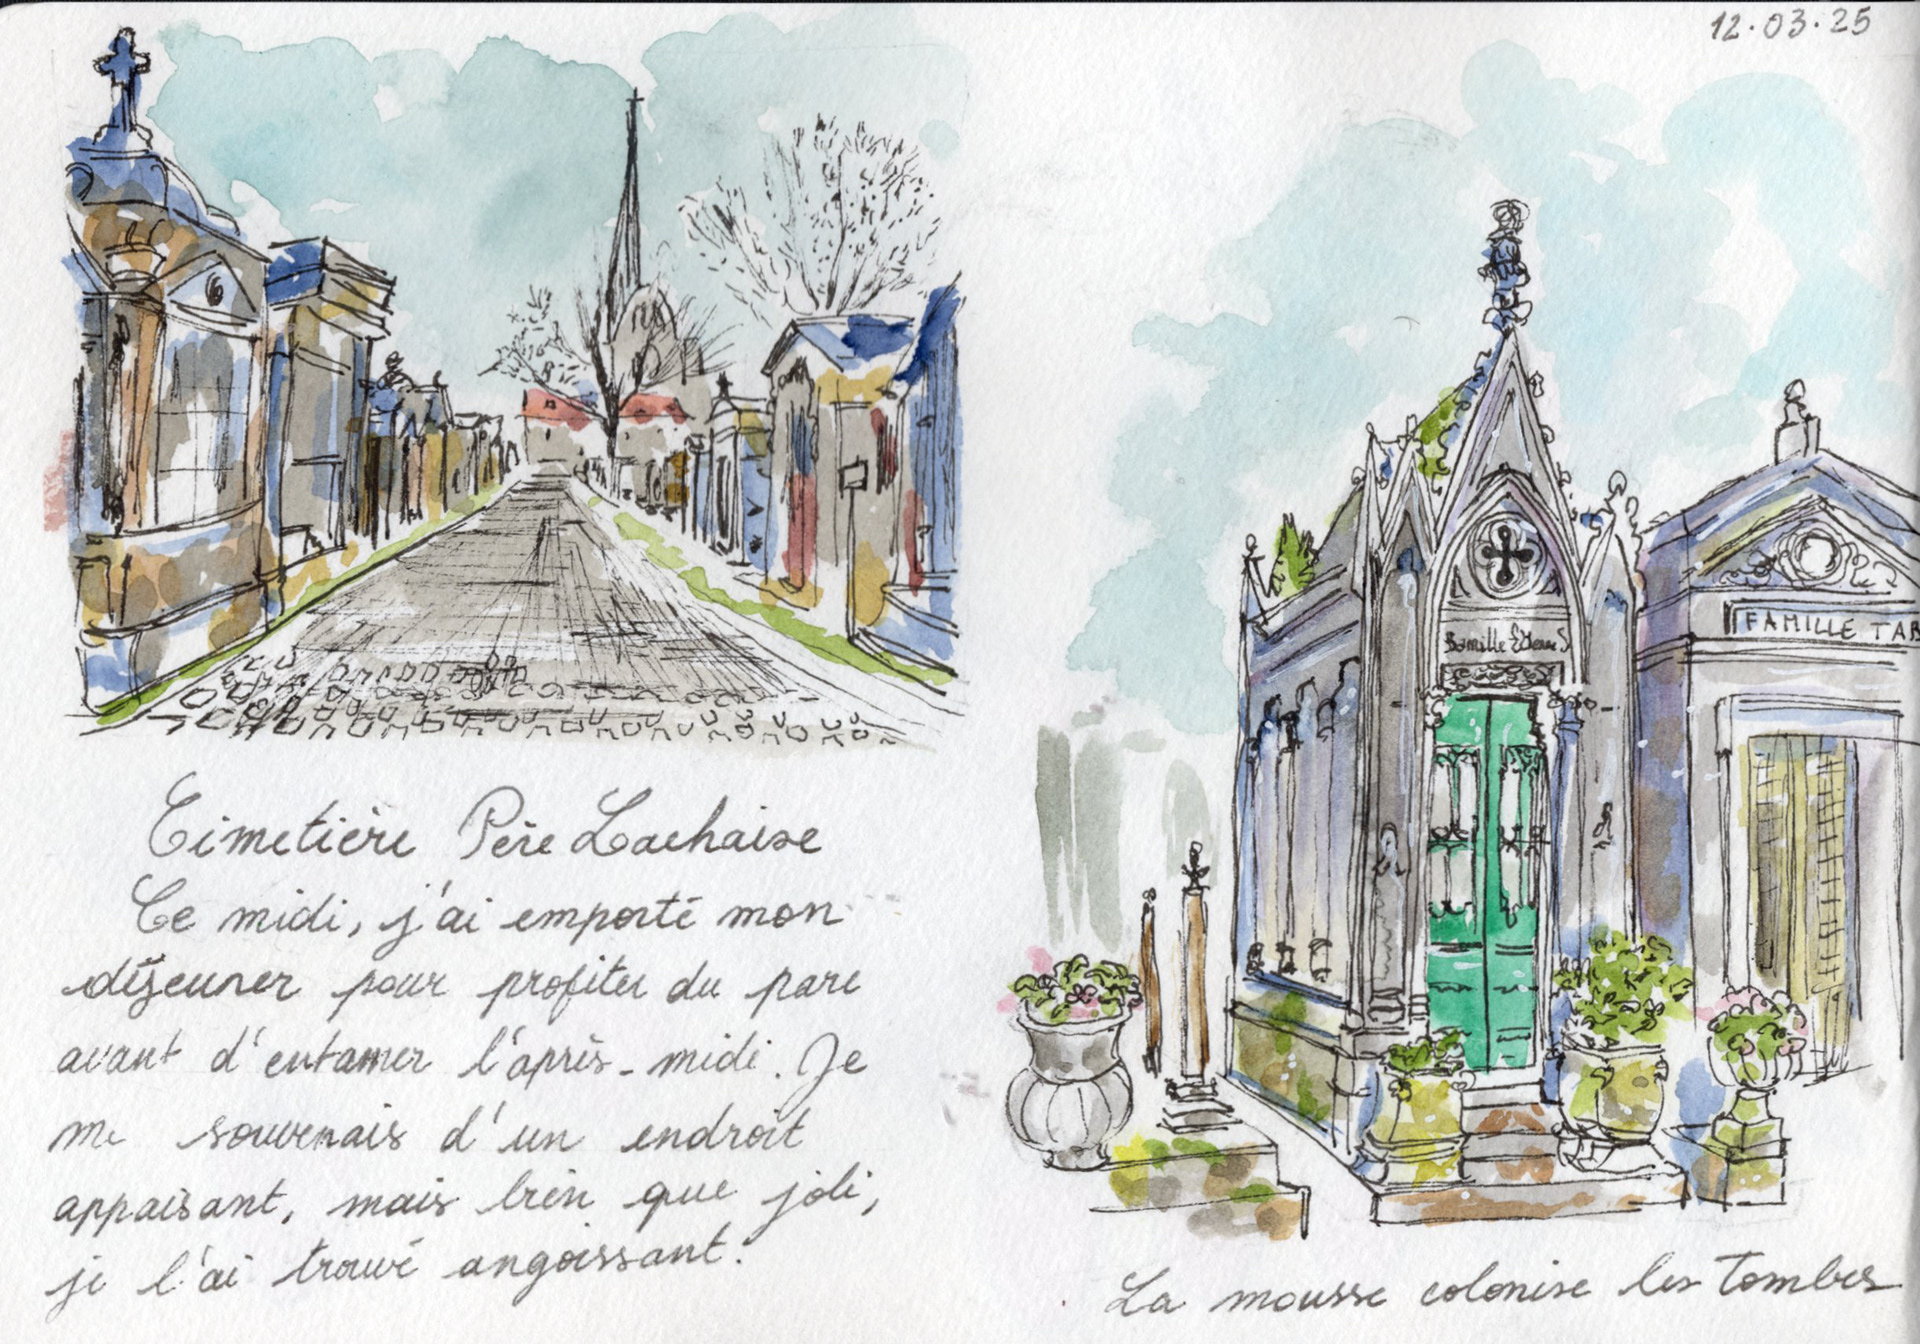 12.03.25
FAMILLE TAB
Famille
Cimetière Père Lachaise
Ce midi, j'ai emporté mon
déjeuner pour profiter du parc
avant d'entamer l'après-midi. Je
me souvenais d'un endroit
appaisant, mais bien que joli,
je l'ai trouvé angoissant.
La mousse colonise les tombes